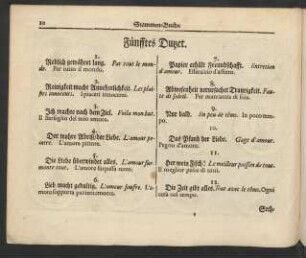 10 Stammen-Buchs
Fünfftes Dutzet.
1.
Redlich gewähret lang. Par tout le mon-
de. Per tutto il mondo.
2.
Reinigkeit macht Annehmlichkeit. Les plai-
sirs innocents. Ignocenti
3.
Ich mache nach dem Ziel. Voila mon but.
Il bersaglio del mio amore.
4.
Der wahre Abriß der Liebe. L'amour pein-
ture. L'amore pittore.
5.
Die Liebe überwindet alles. L'amour sur-
monte tout. L'amore sorpassa tutto.
6.
Lieb macht gedultig. L'amour souffre. L'a-
more sopporta patientemente.
7.
Papier erhält Freundschafft. Entretien
d'amour. d'affetto.
8.
Abwesenheit verursachet Traurigkeit. Fau-
te de soleil. Per mancanza di sole.
9.
Nur bald. En peu de tems. In poco tem-
po.
10.
Das Pfand der Liebe. Gage d'amour.
Pegno d'amore.
11.
Her mein Fisch! Le meilleur poisson de tous.
Il meglior pesce di tutti.
12.
Die Zeit gibt alles. Tout avec le tems. Ogni
cosa col tempo.